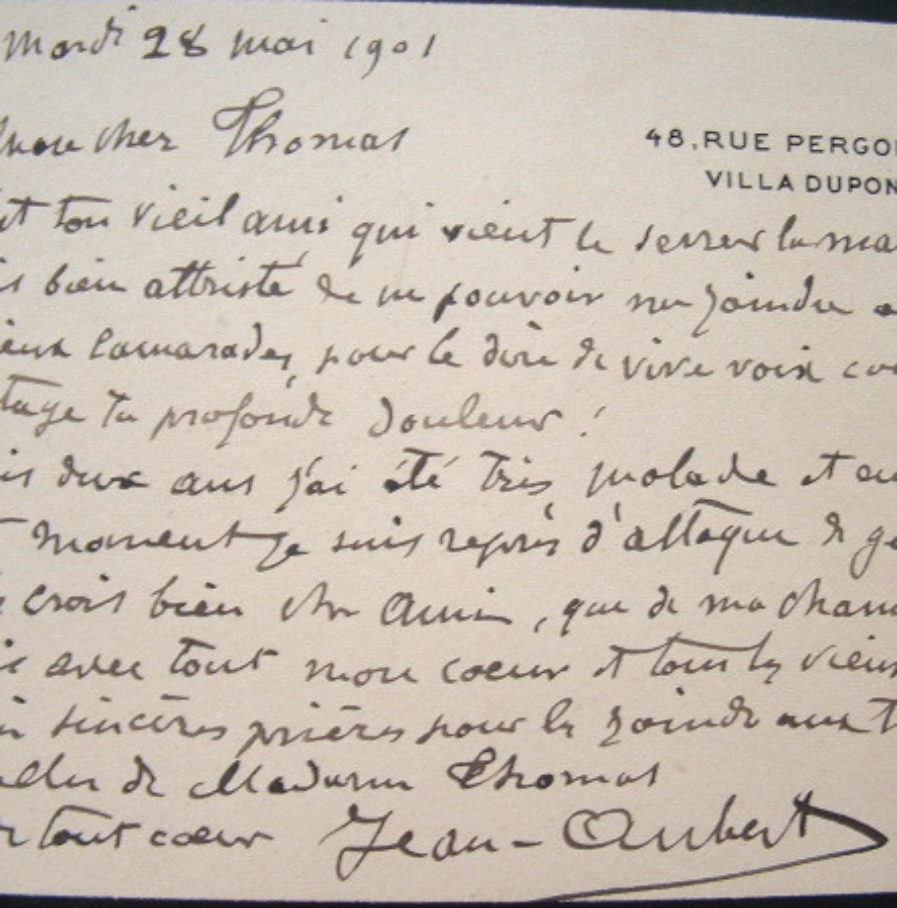 Mardi 28 mai 1901
mon cher Thomas
48, RUE PERGO
VILLA DUPON
ton vieil ami qui vient te serrer la ma
bien attristé de ne pouvoir me joindre a
camarades, pour te dire de vive voix co
tage ta profonde douleur !
is deux ans j'ai été très malade et en
moment je suis repris d'attaque de go
crois bien cher Ami, que de ma cham
avec tout mon coeur et tous les vieux
sincères prières pour les joindre aux t
de Madame Thomas
tout coeur Jean-Aubert